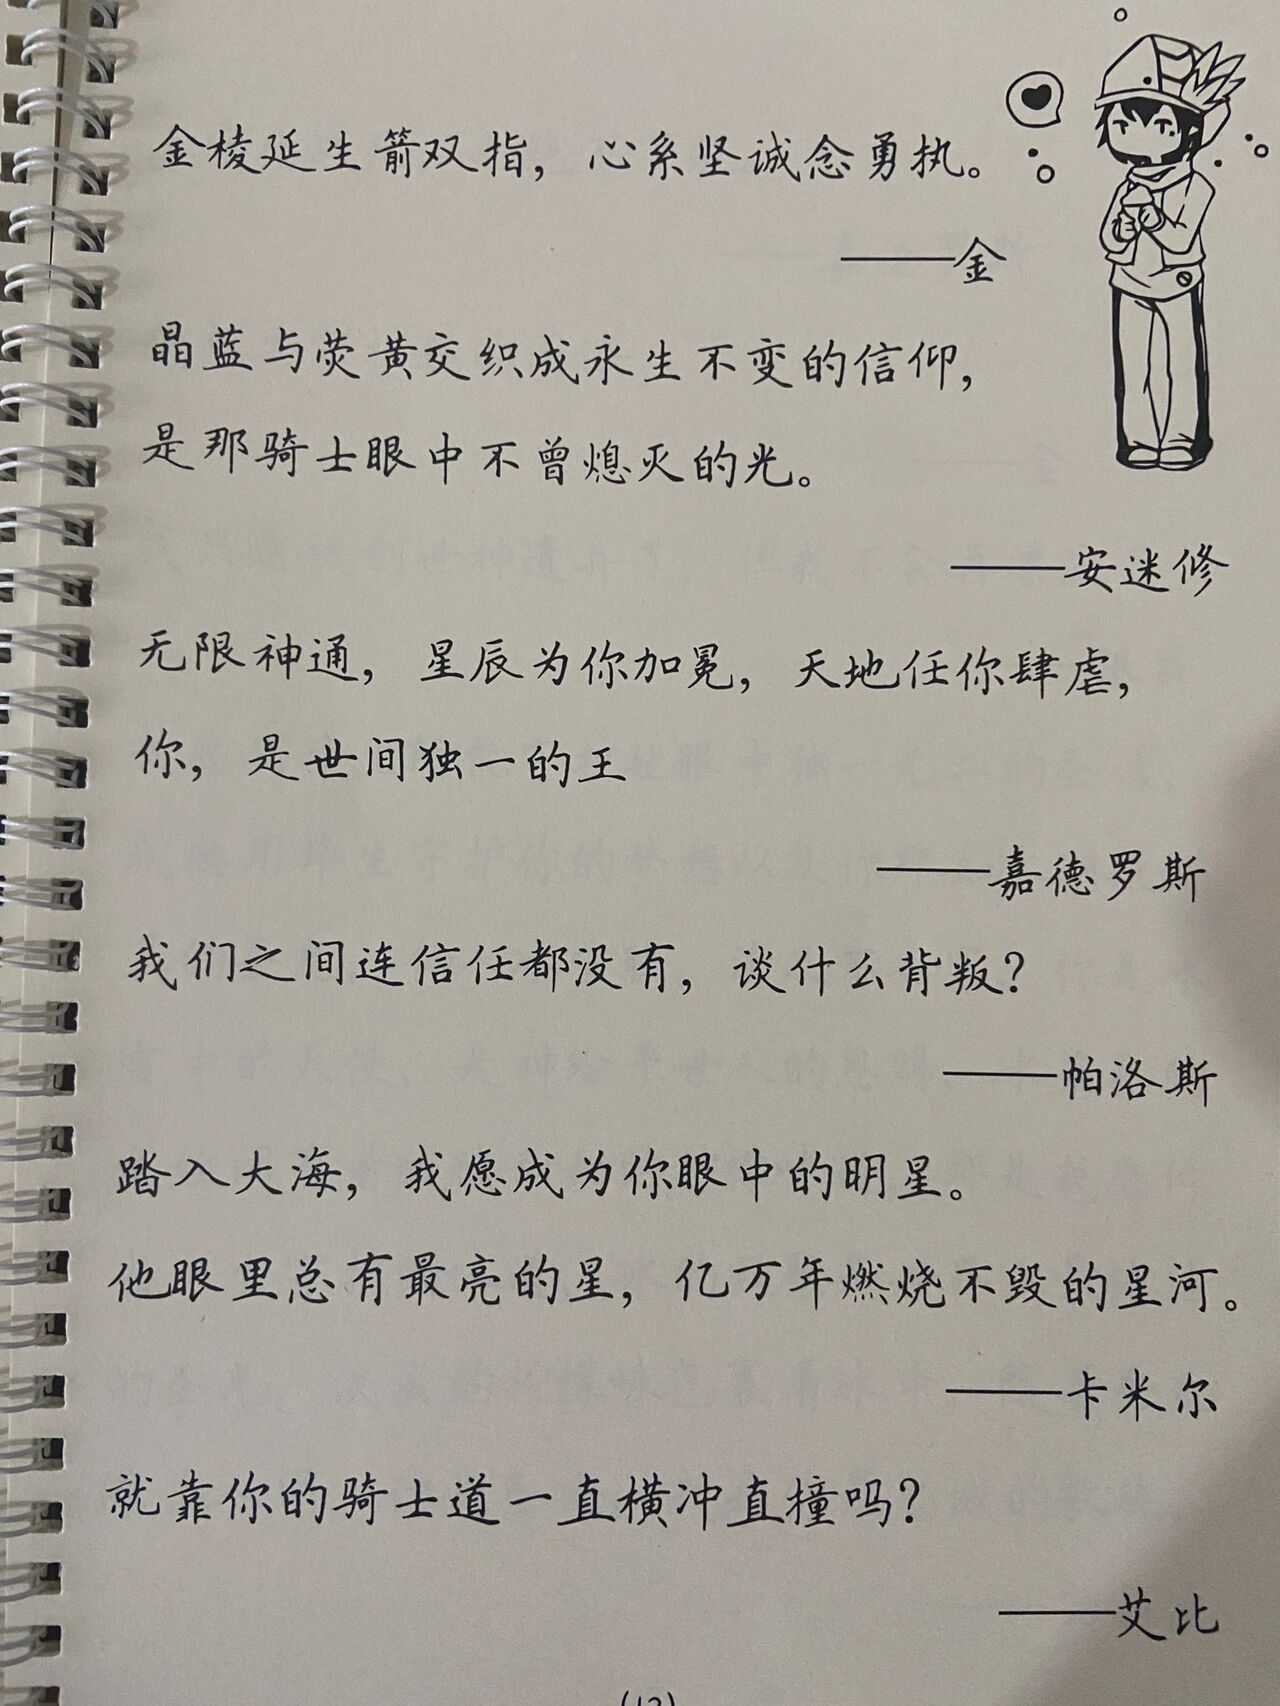 金棱延生箭双指，心系坚诚念勇执。
——金
晶蓝与荧黄交织成永生不变的信仰，
是那骑士眼中不曾熄灭的光。
——安迷修
无限神通，星辰为你加冕，天地任你肆虐，
你，是世间独一的王
——嘉德罗斯
我们之间连信任都没有，谈什么背叛？
——帕洛斯
踏入大海，我愿成为你眼中的明星。
他眼里总有最亮的星，亿万年燃烧不毁的星河。
——卡米尔
就靠你的骑士道一直横冲直撞吗？
——艾比